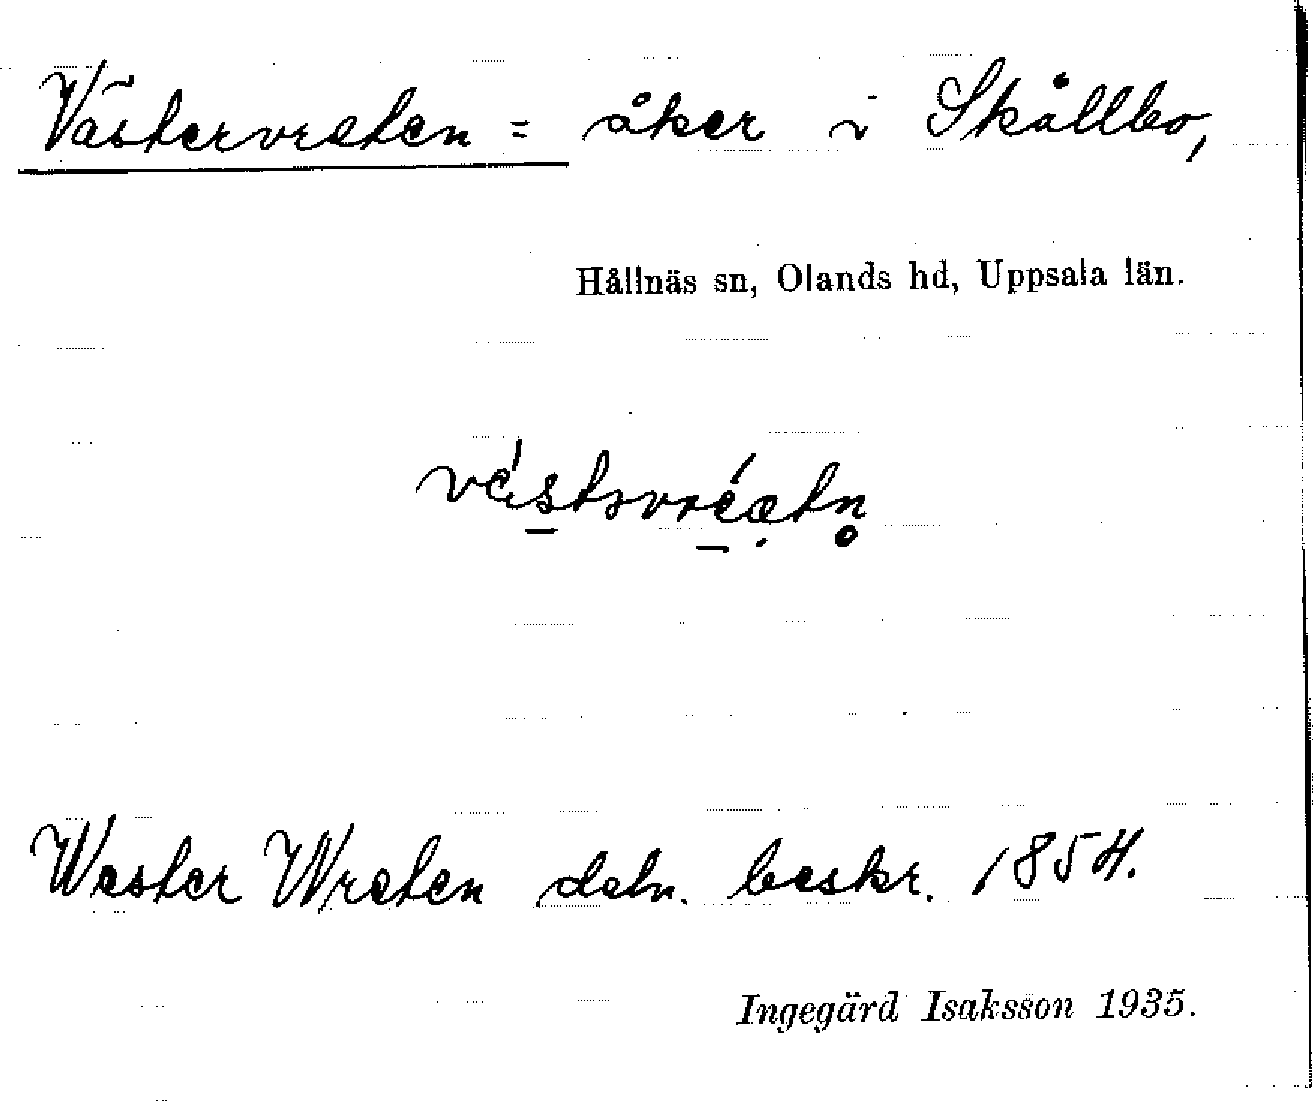 Västervreten = åker i Skållbo,
Hållnäs sn, Olands hd, Uppsala län.
Wester Wreten deln. beskr. 1854.
Ingegärd Isaksson 1935.